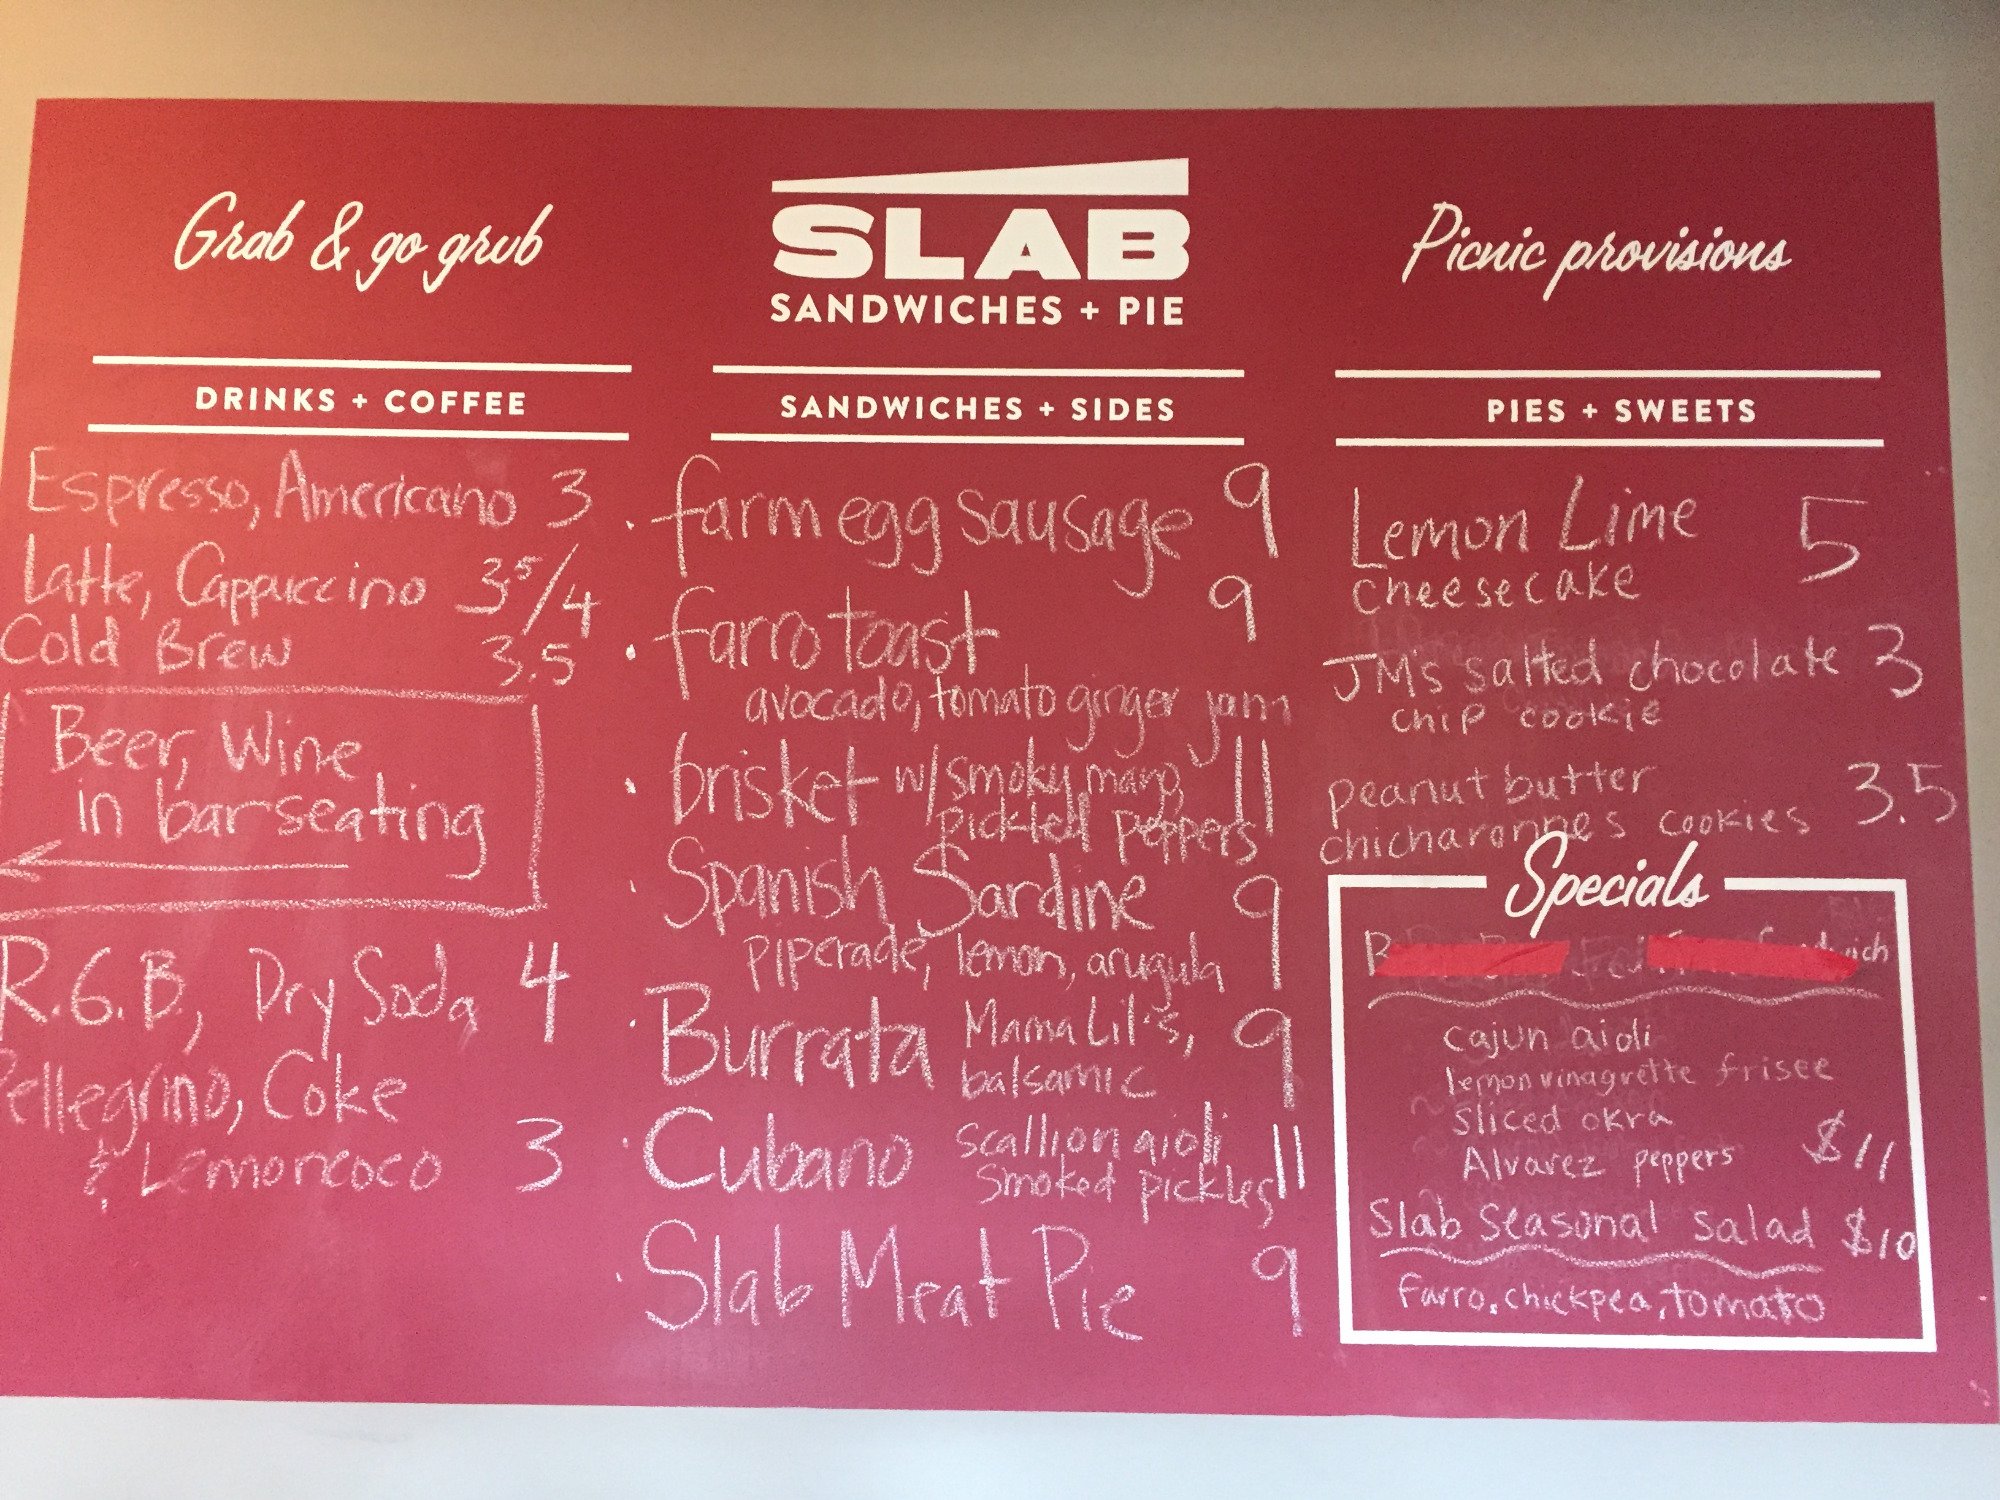 Grab & go grub
DRINKS + COFFEE
Espresso, Americano 3
Latte, Cappuccino 3.5/4
Cold Brew 3.5
Beer, Wine
in bar seating
R.G.B, Dry Soda, 4
Pellegrino, Coke
& Lemoncoco 3
SLAB
SANDWICHES + PIE
SANDWICHES + SIDES
farm egg sausage 9
farro toast 9
avocado, tomato ginger yam
brisket w/ smoky mayo, 11
pickled peppers
Spanish Sardine 9
piperade, lemon, arugula
Burrata Mama Lil's, 9
balsamic
Cubano scallion aioli 11
smoked pickles
Slab Meat Pie 9
Picnic provisions
PIES + SWEETS
Lemon Lime 5
cheesecake
JM's salted chocolate 3
chip cookie
peanut butter 3.5
chicharonnes cookies
Specials
cajun aioli
lemon vinagrette frisee
sliced okra
Alvarez peppers $11
Slab seasonal salad $10
farro, chickpea, tomato